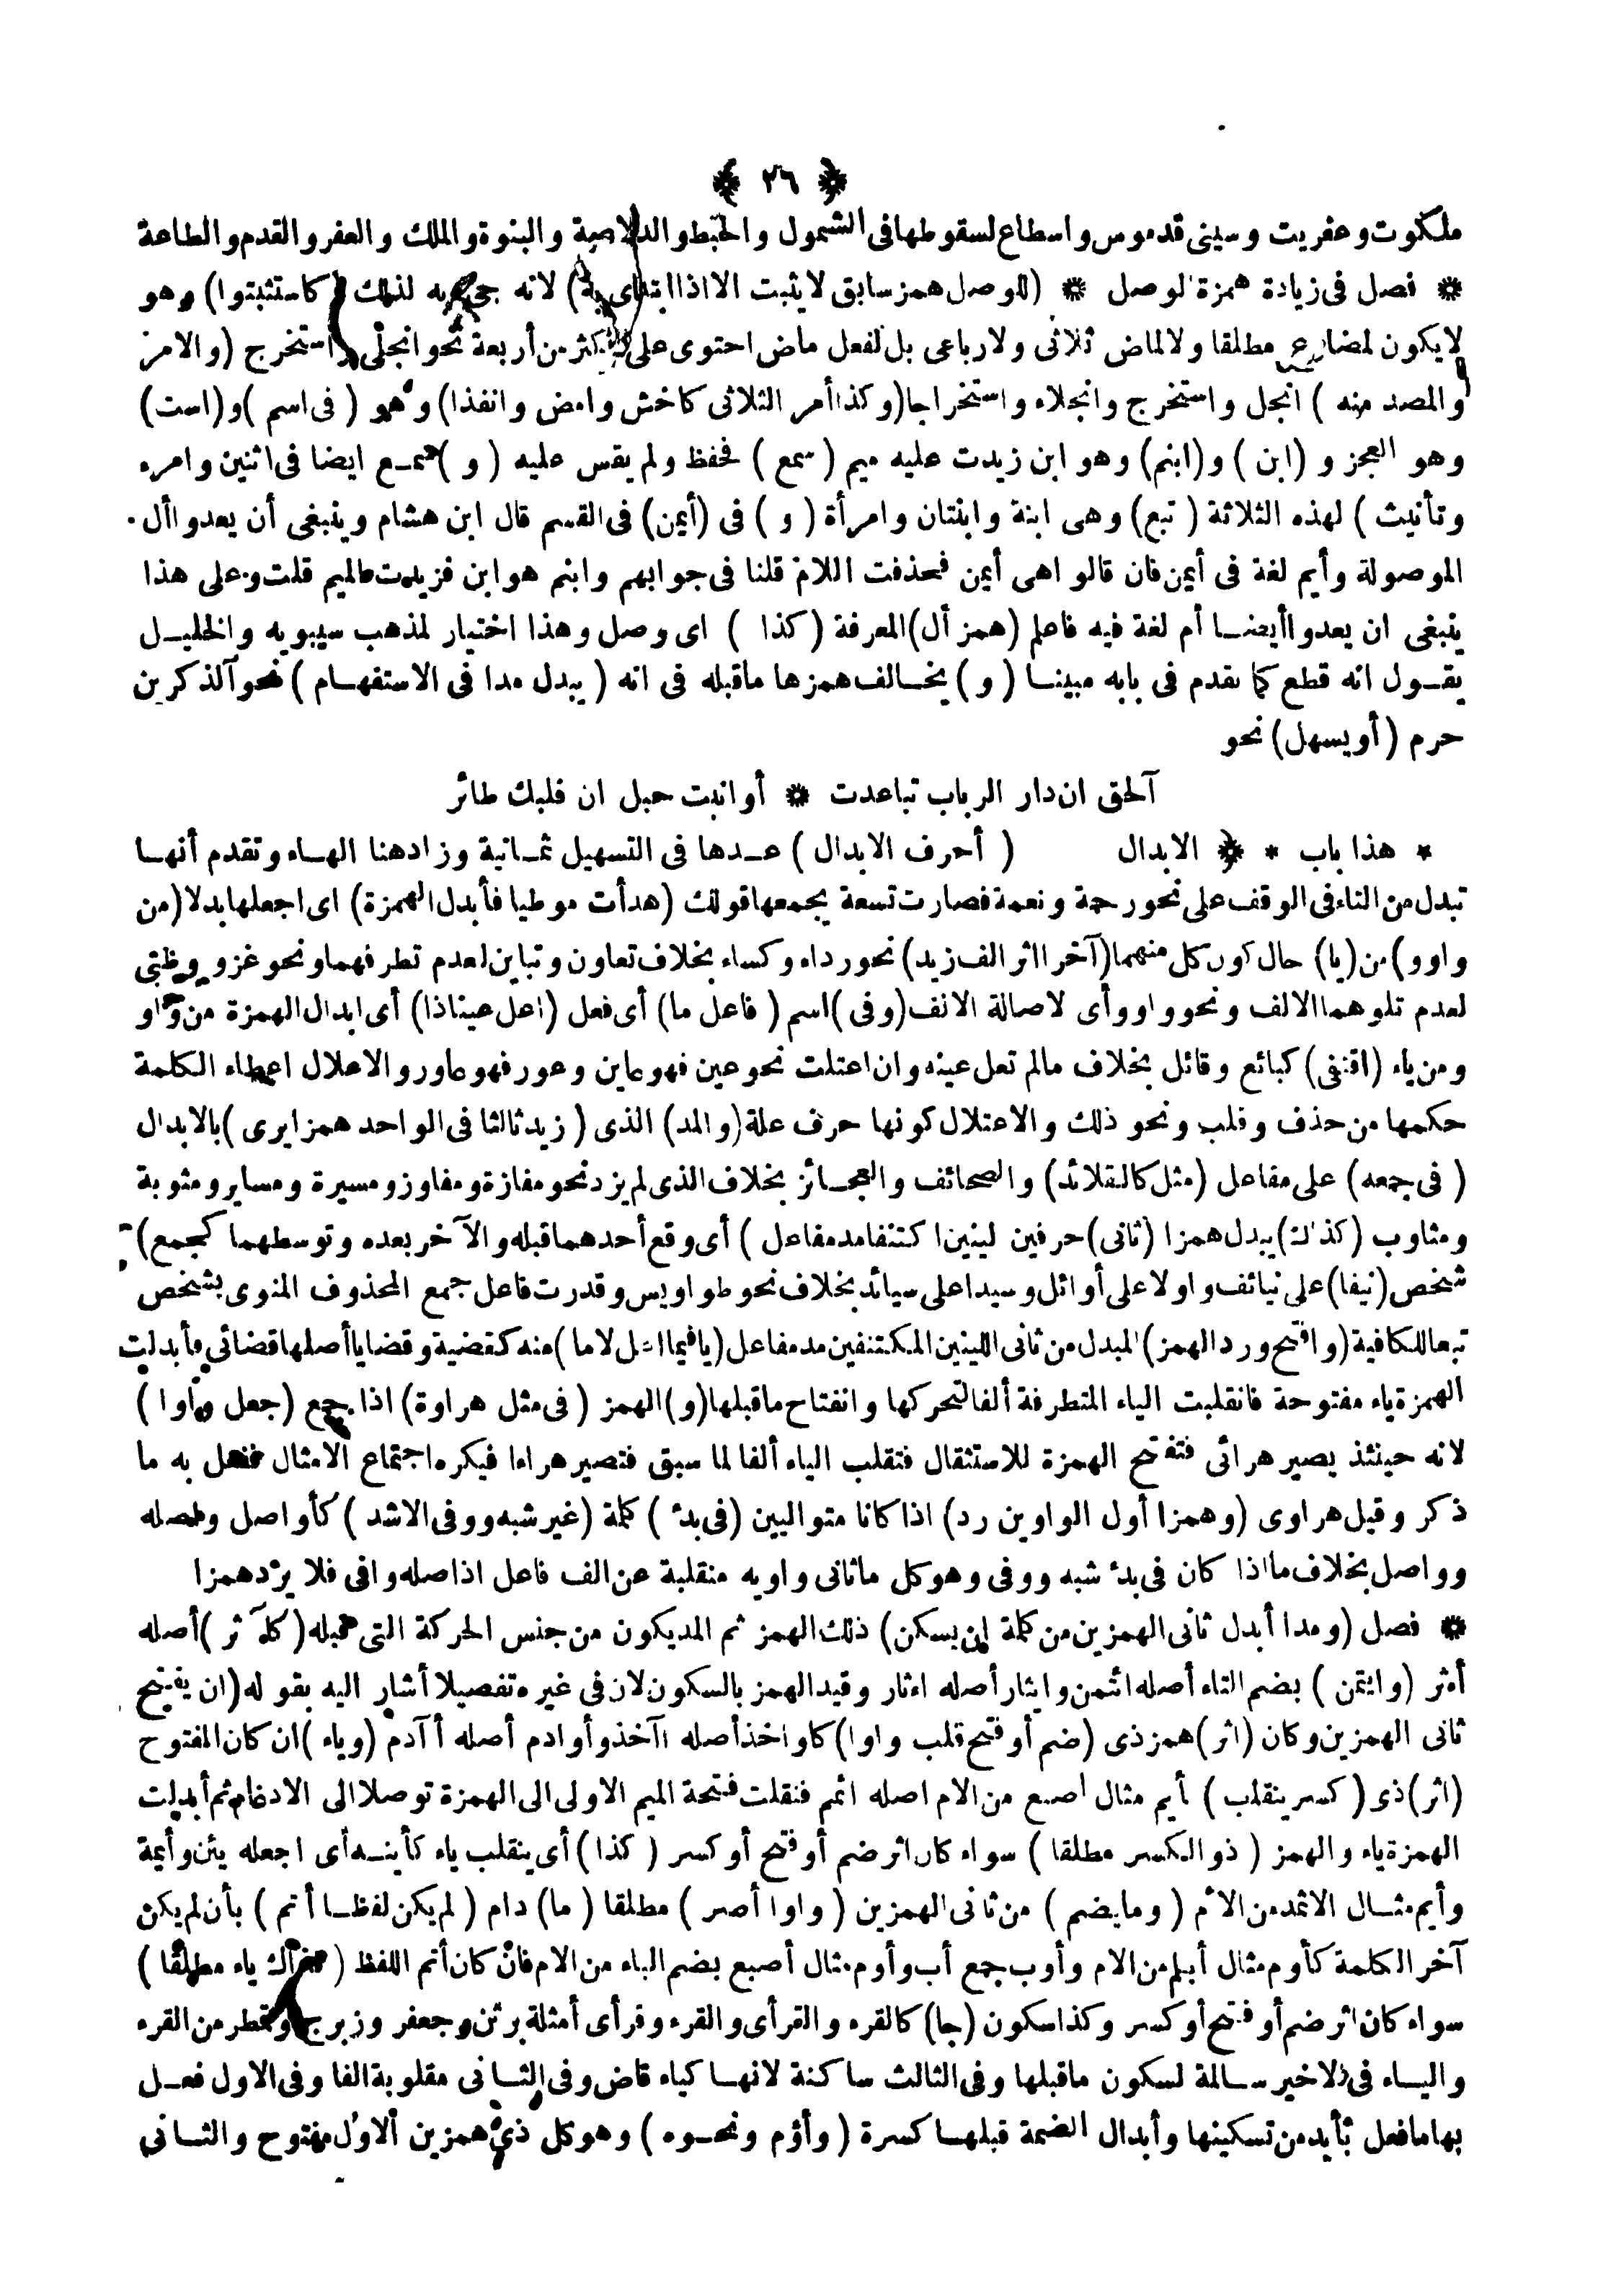 ﴿ ٢٦ ﴾
ملكوت وعفريت وسينى قدموس واسطاع لسقوطها فى الشمول والحبط والدلاصة والبنوة والملك والعفر والقدم والطاعة
* فصل فى زيادة همزة الوصل * (للوصل همز سابق لا يثبت الا اذا ابتدى به) لانه جىء به لذلك (كاستثبتوا) وهو
لا يكون لمضارع مطلقا ولا لماض ثلاثى ولا رباعى بل لفعل ماض احتوى على أكثر من أربعة نحو انجلى واستخرج (والامر
والمصدر منه) انجل واستخرج وانجلاء واستخراجا (وكذا أمر الثلاثى كاخش وامض وانفذا) وهو (فى اسم) و(است)
وهو العجز و (ابن) و(ابنم) وهو ابن زيدت عليه ميم (سمع) فحفظ ولم يقس عليه (و) سمع ايضا فى اثنين وامرء
وتأنيث) لهذه الثلاثة (تبع) وهى ابنة وابنتان وامرأة (و) فى (أيمن) فى القسم قال ابن هشام وينبغى أن يعدوا أل
الموصولة وأيم لغة فى أيمن فان قالوا هى أيمن فحذفت اللام قلنا فى جوابهم وابنم هو ابن فزيدت الميم قلت وعلى هذا
ينبغى ان يعدوا أيضا أم لغة فيه فاعلم (همز أل) المعرفة (كذا) اى وصل وهذا اختيار لمذهب سيبويه والخليل
يقول انه قطع كما تقدم فى بابه مبينا (و) يخالف همزها ماقبله فى انه (يبدل مدا فى الاستفهام) نحو آلذكرين
حرم (أويسهل) نحو
آلحق ان دار الرباب تباعدت * أوانبت حبل ان قلبك طائر
* هذا باب * ﴿ الابدال (أحرف الابدال) عدها فى التسهيل ثمانية وزاد هنا الهاء وتقدم أنها
تبدل من التاء فى الوقف على نحو رحمة ونعمة فصارت تسعة يجمعها قولك (هدأت موطيا فأبدل الهمزة) اى اجعلها بدلا (من
واو و) من (يا) حال كون كل منهما (آخرا اثر الف زيد) نحو رداء وكساء بخلاف تعاون وتباين لعدم تطرفهما ونحو غزو وظبى
لعدم تلوهما الالف ونحو واو وأى لاصالة الالف (وفى) اسم (فاعل ما) أى فعل (اعل عينا ذا) أى ابدال الهمزة من واو
ومن ياء (اقتفى) كبائع وقائل بخلاف مالم تعل عينه وان اعتلت نحو عين فهو عاين وعور فهو عاور والاعلال اعطاء الكلمة
حكمها من حذف وقلب ونحو ذلك والاعتلال كونها حرف علة (والمد) الذى (زيد ثالثا فى الواحد همزا يرى) بالابدال
(فى جمعه) على مفاعل (مثل كالقلائد) والصحائف والعجائز بخلاف الذى لم يزد نحو مفازة ومفاوز ومسيرة ومساير ومثوبة
ومثاوب (كذاك) يبدل همزا (ثانى) حرفين لينين اكتنفا مد مفاعل) أى وقع أحدهما قبله والآخر بعده وتوسطهما كجمع)
شخص (نيفا) على نيائف واولا على أوائل وسيدا على سيائد بخلاف نحو طواويس وقدرت فاعل جمع المحذوف المنوى بشخص
تبعا للكافية (وافتح ورد الهمز) المبدل من ثانى اللينين المكتنفين مد مفاعل (يا فيما اعل لاما) منه كقضية وقضايا أصلها قضائى فأبدلت
الهمزة ياء مفتوحة فانقلبت الياء المتطرفة ألفا لتحركها وانفتاح ماقبلها (و) الهمز (فى مثل هراوة) اذا جمع (جعل واوا)
لانه حينئذ يصير هرائى فتفتح الهمزة للاستثقال فتقلب الياء ألفا لما سبق فتصير هراءا فيكره اجتماع الامثال ففعل به ما
ذكر وقيل هراوى (وهمزا أول الواوين رد) اذا كانا متواليين (فى بدء) كلمة (غير شبه ووفى الاشد) كأواصل واصله
وواصل بخلاف ما اذا كان فى بدء شبه ووفى وهو كل ماثانى واويه منقلبة عن الف فاعل اذا صله وافى فلا يرد همزا
* فصل (ومدا أبدل ثانى الهمزين من كلمة ان يسكن) ذلك الهمز ثم المد يكون من جنس الحركة التى قبله (كآثر) أصله
أءثر (وائتمن) بضم التاء أصله ائتمن وايثار أصله اءثار وقيد الهمز بالسكون لان فى غيره تفصيلا أشار اليه بقوله (ان يفتح
ثانى الهمزين وكان (اثر) همز ذى (ضم أو فتح قلب واوا) كاواخذ أصله اآخذ وأوادم أصله أآدم (وياء) ان كان المفتوح
(اثر) ذى (كسر ينقلب) أيم مثال اصبع من الام اصله ائمم فنقلت فتحة الميم الاولى الى الهمزة توصلا الى الادغام ثم أبدلت
الهمزة ياء والهمز (ذو الكسر مطلقا) سواء كان اثر ضم أو فتح أو كسر (كذا) أى ينقلب ياء كأينه أى اجعله يئن وأيمة
وأيم مثال الاثمد من الأم (ومايضم) من ثانى الهمزين (واوا أصر) مطلقا (ما) دام (لم يكن لفظا أتم) بأن لم يكن
آخر الكلمة كأوم مثال أبلم من الام وأوب جمع أب وأوم مثال أصبع بضم الباء من الام فان كان أتم اللفظ (فذاك ياء مطلقا)
سواء كان اثر ضم أو فتح أو كسر وكذا سكون (جا) كالقرء والقرأى والقرء وقرأى أمثلة برثن وجعفر وزبرج وقمطر من القرء
والياء فى الاخير سالمة لسكون ماقبلها وفى الثالث ساكنة لانها كياء قاض وفى الثانى مقلوبة الفا وفى الاول فعل
بها مافعل بأيد من تسكينها وأبدال الضمة قبلها كسرة (وأؤم ونحوه) وهو كل ذى همزين الاول مفتوح والثانى